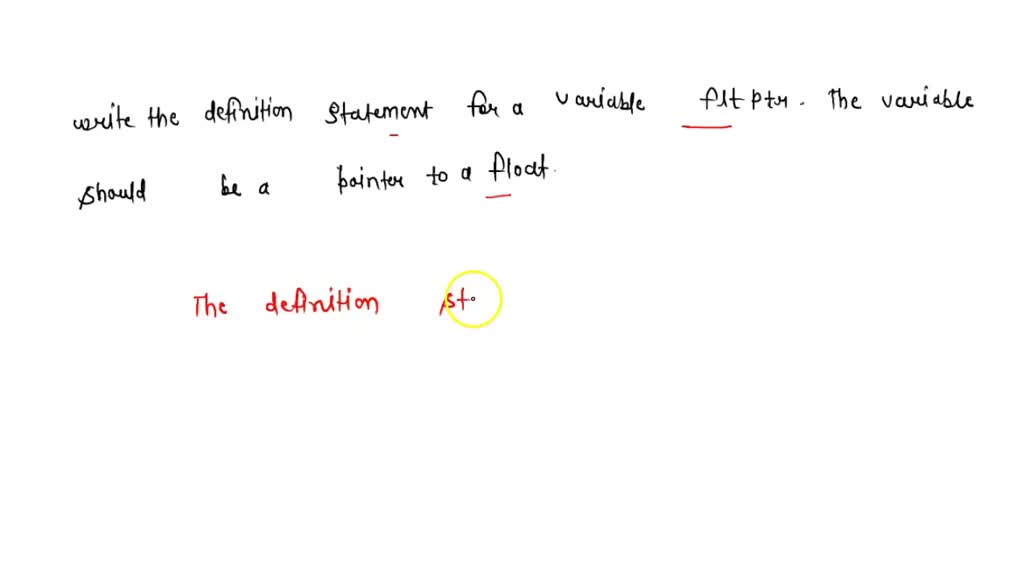 write the definition statement for a variable flt ptr. The variable
should be a pointer to a float.
The definition st